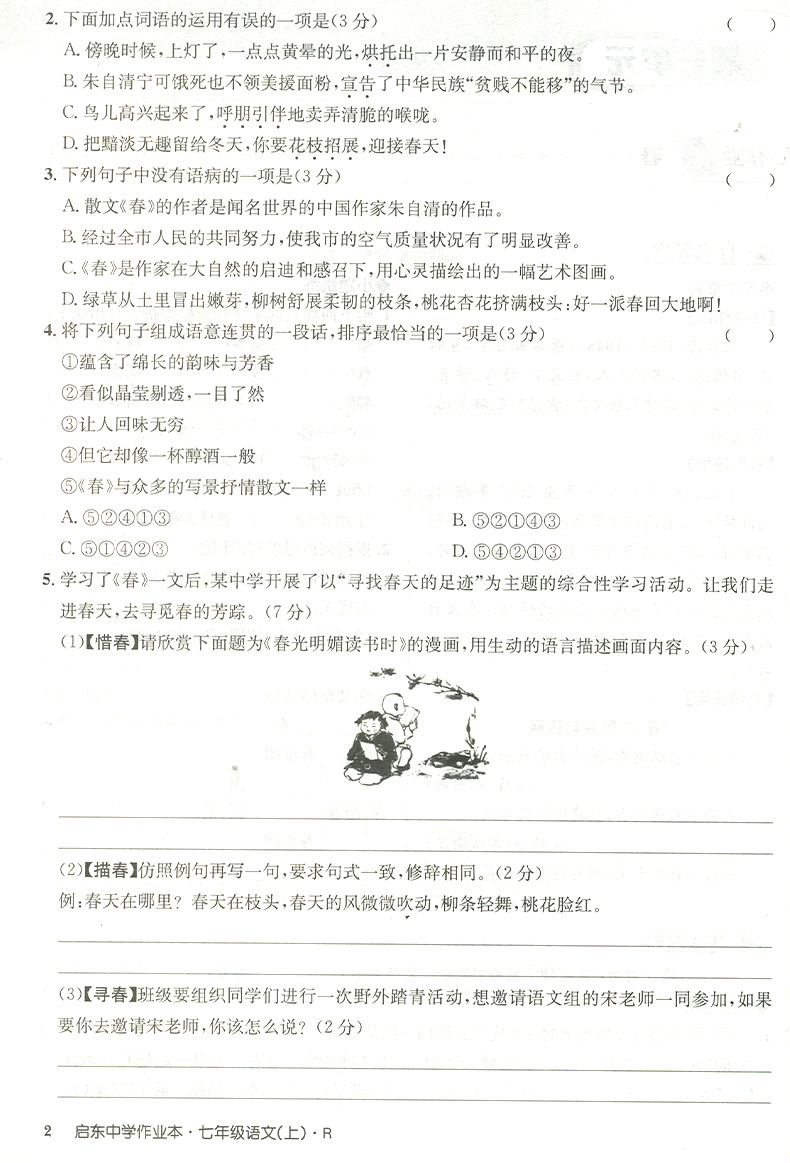 2. 下面加点词语的运用有误的一项是(3分) (  )
A. 傍晚时候,上灯了,一点点黄晕的光,烘托出一片安静而和平的夜。
B. 朱自清宁可饿死也不领美援面粉,宣告了中华民族“贫贱不能移”的气节。
C. 鸟儿高兴起来了,呼朋引伴地卖弄清脆的喉咙。
D. 把黯淡无趣留给冬天,你要花枝招展,迎接春天!
3. 下列句子中没有语病的一项是(3分) (  )
A. 散文《春》的作者是闻名世界的中国作家朱自清的作品。
B. 经过全市人民的共同努力,使我市的空气质量状况有了明显改善。
C. 《春》是作家在大自然的启迪和感召下,用心灵描绘出的一幅艺术图画。
D. 绿草从土里冒出嫩芽,柳树舒展柔韧的枝条,桃花杏花挤满枝头:好一派春回大地啊!
4. 将下列句子组成语意连贯的一段话,排序最恰当的一项是(3分) (  )
①蕴含了绵长的韵味与芳香
②看似晶莹剔透,一目了然
③让人回味无穷
④但它却像一杯醇酒一般
⑤《春》与众多的写景抒情散文一样
A. ⑤②④①③ B. ⑤②①④③
C. ⑤①④②③ D. ⑤④②①③
5. 学习了《春》一文后,某中学开展了以“寻找春天的足迹”为主题的综合性学习活动。让我们走
进春天,去寻觅春的芳踪。(7分)
(1)【惜春】请欣赏下面题为《春光明媚读书时》的漫画,用生动的语言描述画面内容。(3分)
(2)【描春】仿照例句再写一句,要求句式一致,修辞相同。(2分)
例:春天在哪里? 春天在枝头,春天的风微微吹动,柳条轻舞,桃花脸红。
(3)【寻春】班级要组织同学们进行一次野外踏青活动,想邀请语文组的宋老师一同参加,如果
要你去邀请宋老师,你该怎么说? (2分)
2 启东中学作业本·七年级语文(上)·R